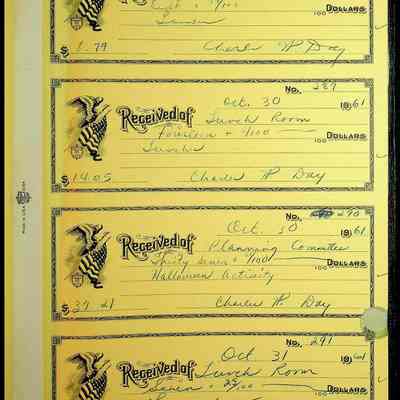 DOLLARS
100
$ 8.79 Charles W. Day
No. 289
Oct. 30 1961
Received of Lunch Room
Fourteen + /100 DOLLARS
100
Lunches
$ 14.05 Charles W. Day
No. 290
Oct. 30 1961
Received of Planning Committee
Thirty seven + /100 DOLLARS
100
Halloween Activity
$ 37.21 Charles W. Day
No. 291
Oct. 31 1961
Received of Lunch Room
Seven + 25/100 DOLLARS
100
MADE IN U.S.A.